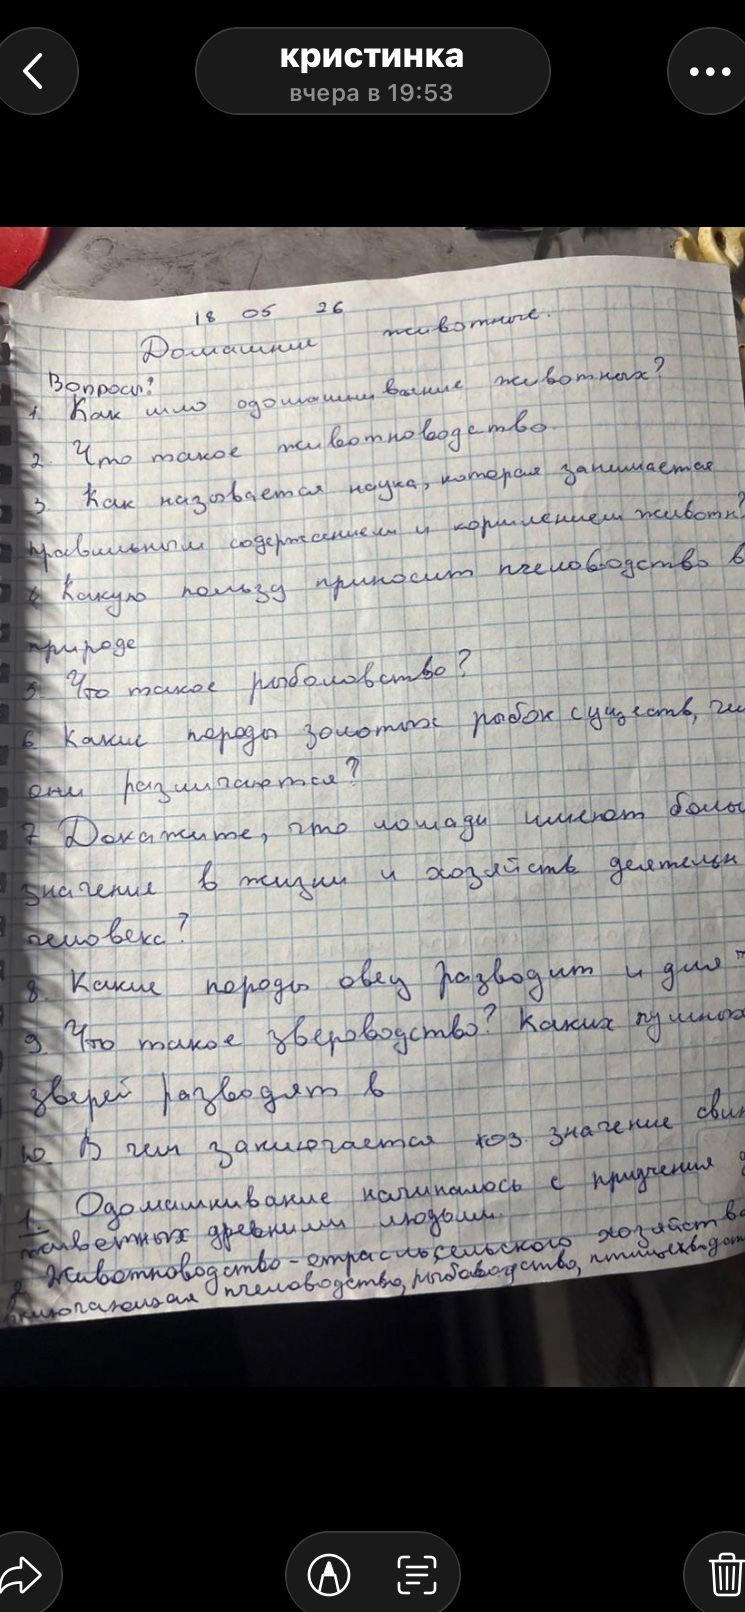 кристинка
вчера в 19:53
18 05 26
Домашние животные.
Вопросы:
1. Как шло одомашнивание животных?
2. Что такое животноводство.
3 Как называется наука, которая занимается
правильным содержанием и кормлением животн?
4 Какую пользу приносит пчеловодство в
природе
5. Что такое рыболовство?
6 Какие породы золотых рыбок существ,
они различаются?
7 Докажите, что лошади имеют
значение в жизни и хозяйств деятельн
человека?
8. Какие породы овец разводит и для
9. Что такое звероводство? Каких пушных
зверей разводят в
10. В чем заключается хоз. значение
1. Одомашнивание начиналось с приучения
животных древними людьми.
2 Животноводство - отрасль сельского хозяйства
включающая пчеловодство, рыбоводство,